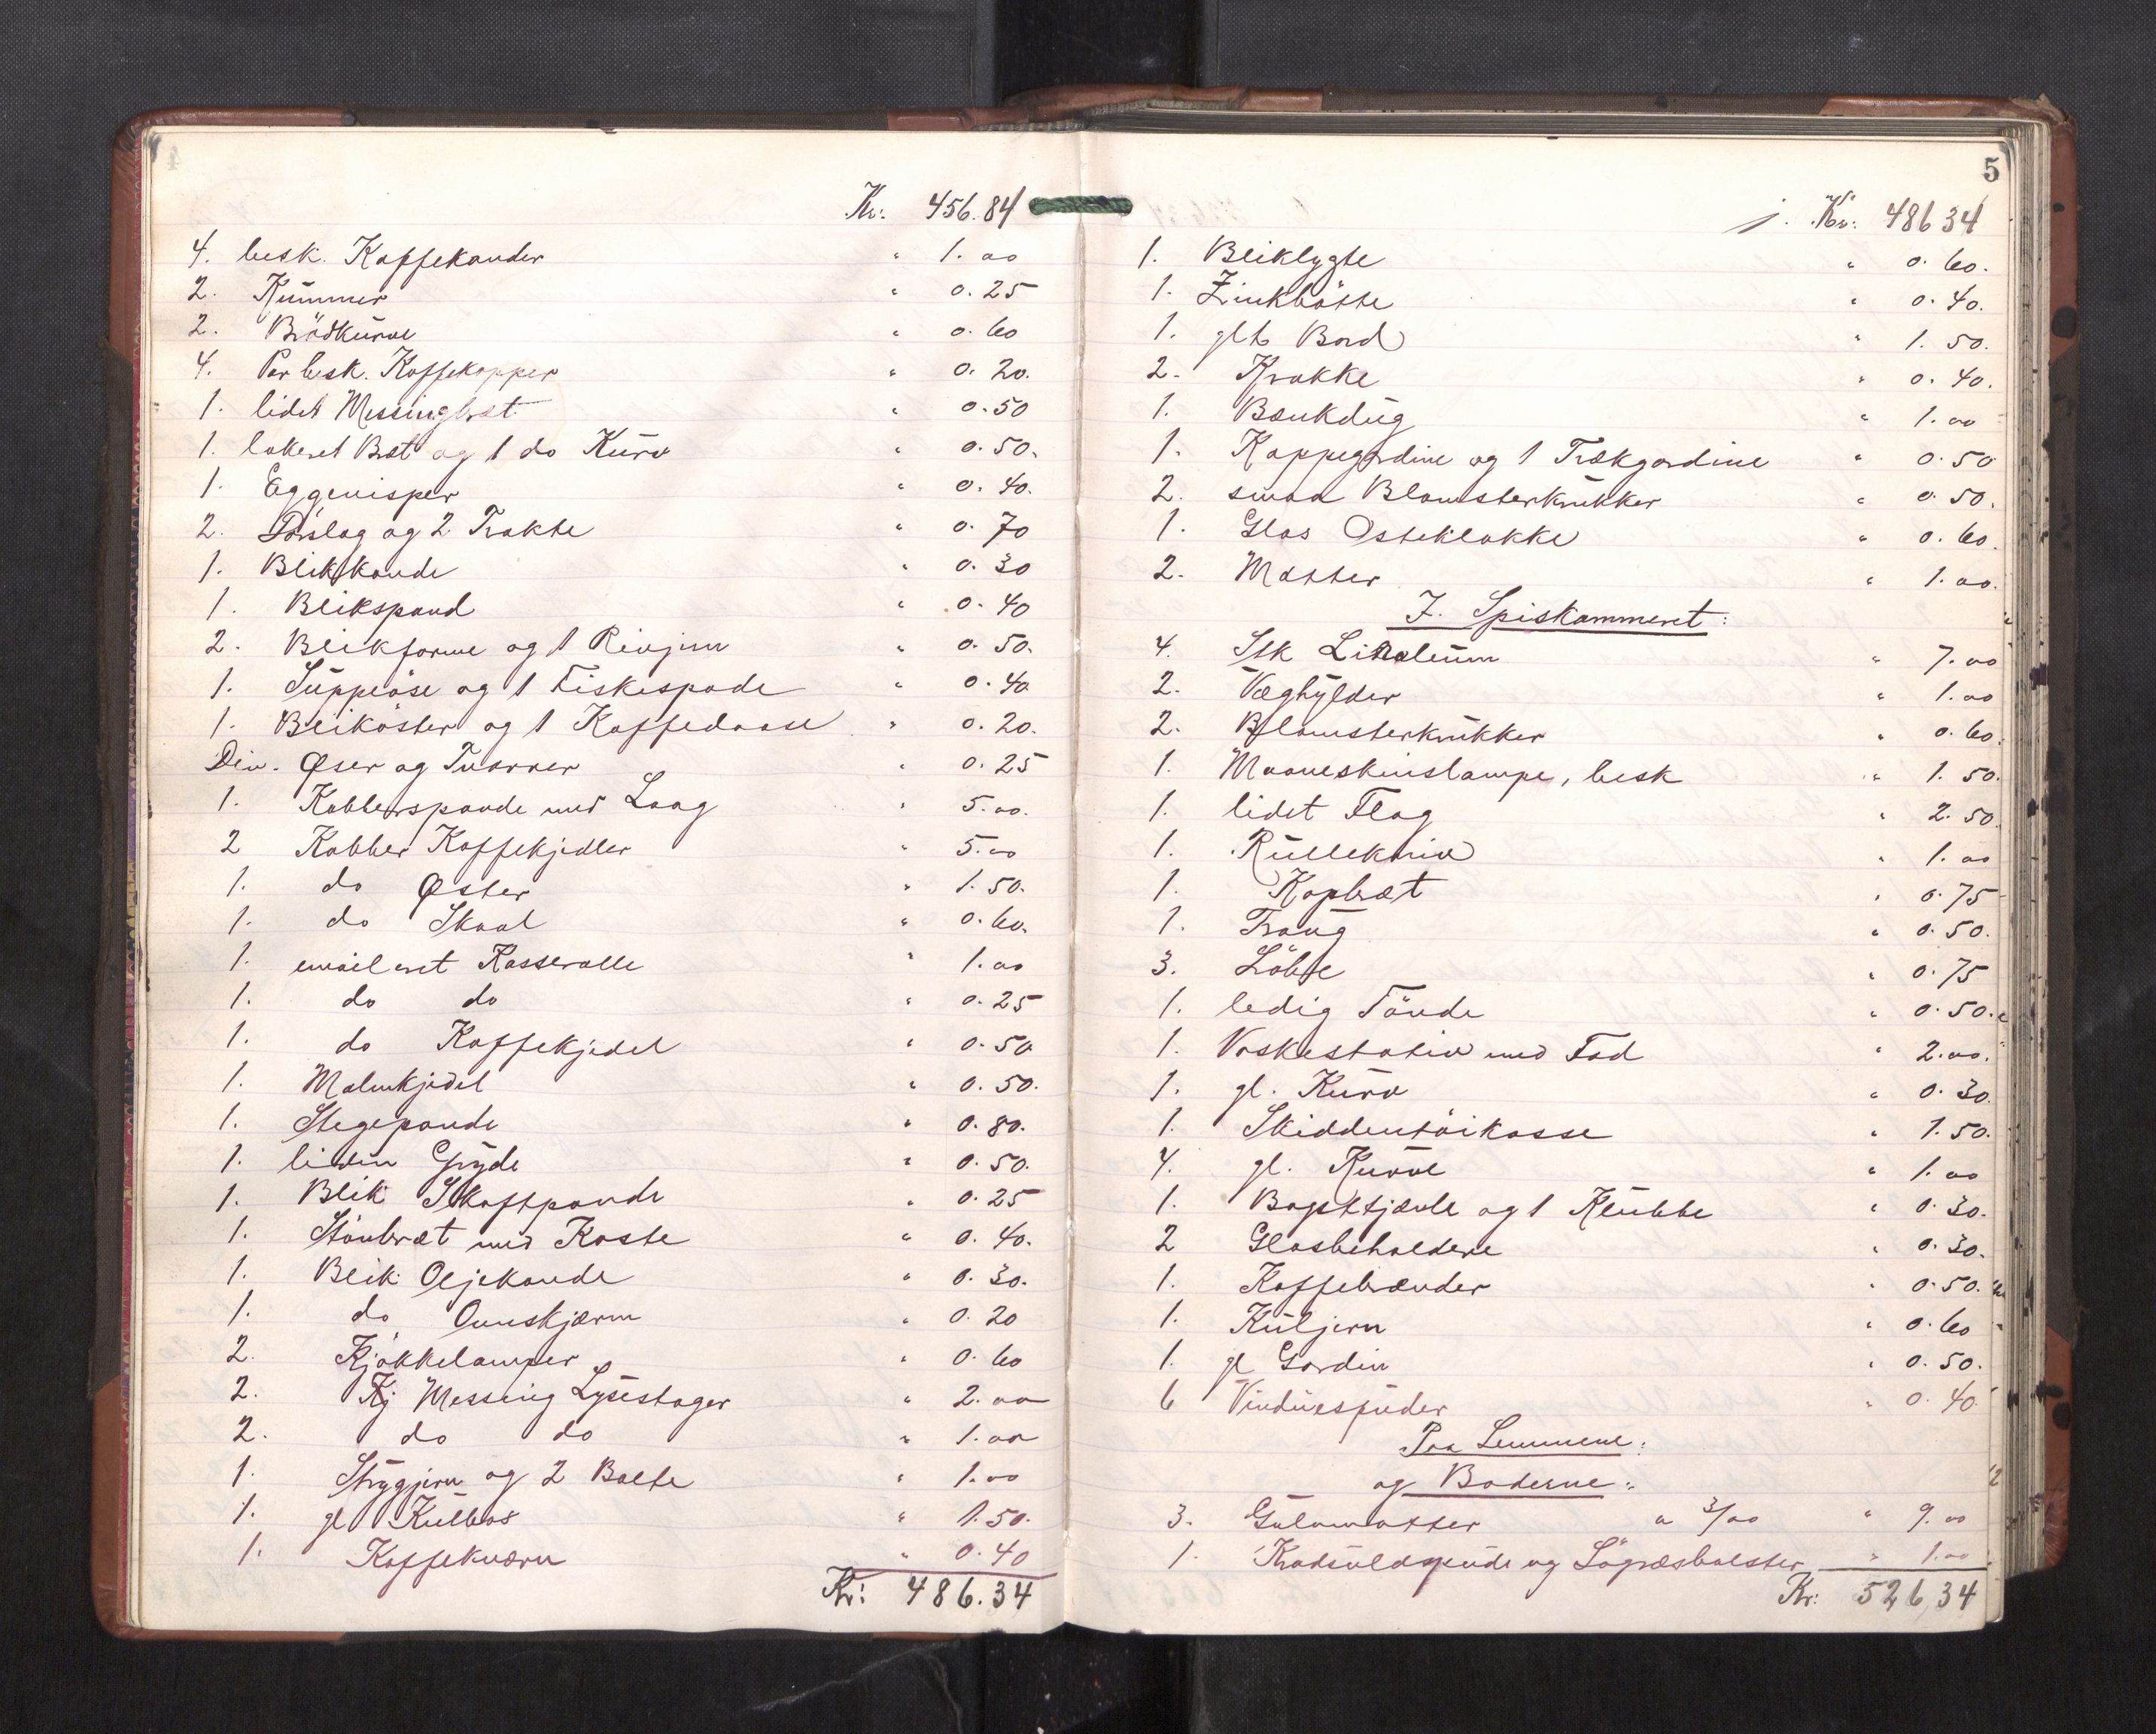 Kr: 456.84
4. besk. Kaffekander " 1.00
2. Kummer " 0.25
2. Brödkurve " 0.60
4. Par besk. Kaffekopper " 0.20.
1. lidet Messingbræt " 0.50
1. lakeret Bræt og 1 do Kurv " 0.50.
1. Eggevisper " 0.40.
2. Dörslag og 2 Trakte " 0.70
1. Blikkande " 0.30
1. Blikspand " 0.40
2. Blikforme og 1 Rivjern " 0.50.
1. Suppeöse og 1 Fiskespade " 0.40
1. Bliköster og 1 Kaffedaase " 0.20.
Div. Øser og Tvarer " 0.25
1. Kobberspande med Laag " 5.00.
2 Kobber Kaffekjedler " 5.00
1. do Øster " 1.50.
1. do Skaal " 0.60.
1. emaileret Kasserolle " 1.00
1. do do " 0.25
1. do Kaffekjedel " 0.50
1. Malmkjedel " 0.50.
1. Stegepande " 0.80.
1. liden Gryde " 0.50.
1. Blik Skaftpande " 0.25
1. Stönbræt med Koste " 0.40.
1. Blik Oljekande " 0.30.
1. do Ovnskjærm " 0.20
2. Kjökkelamper " 0.60
2. Kj Messing Lysestager " 2.00
2. do do " 1.00
1. Strygjern og 2 Bolte " 1.00
1. gl Kulbox " 1.50.
1. Kaffekværn " 0.40
Kr: 486.34
5
Kr: 486 34
1. Bliklygte " 0.60.
1. Zinkbötte " 0.40.
1. glt Bord " 1.50.
2. Krakke " 0.40.
1. Bænkdug " 1.00
1. Kappegardine og 1 Trækgardine " 0.50
2. smaa Blomsterkrukker " 0.50.
1. Glas Osteklokke " 0.60.
2. Matter " 1.00.
I. Spiskammeret:
4. Stk Linoleum " 7.00
2. Væghylder " 1.00
2. Blomsterkrukker " 0.60.
1. Maaneskinslampe, besk " 1.50.
1. lidet Flag " 2.50.
1. Rullekniv " 1.00
1. Kapbræt " 0.75
1. Traug " 0.50.
3. Löbe " 0.75
1. ledig Tönde " 0.50.
1. Vaskestativ med Fad " 2.00.
1. gl. Kurv " 0.30.
1. Skiddentöikasse " 1.50.
4. gl. Kurve " 1.00
1. Bagstfjæle og 1 Klubbe " 0.30.
2 Glasbeholdere " 0.30.
1. Kaffebrænder " 0.50.
1. Kuljern " 0.60
1. gl Gardin " 0.50.
6 Vinduespuder " 0.40.
Paa Lemmene:
og Boderne:
3. Gulvmatter a 3/00 " 9.00
1. Krøduldspude og Sögræsbolster " 1.00
Kr: 526,34